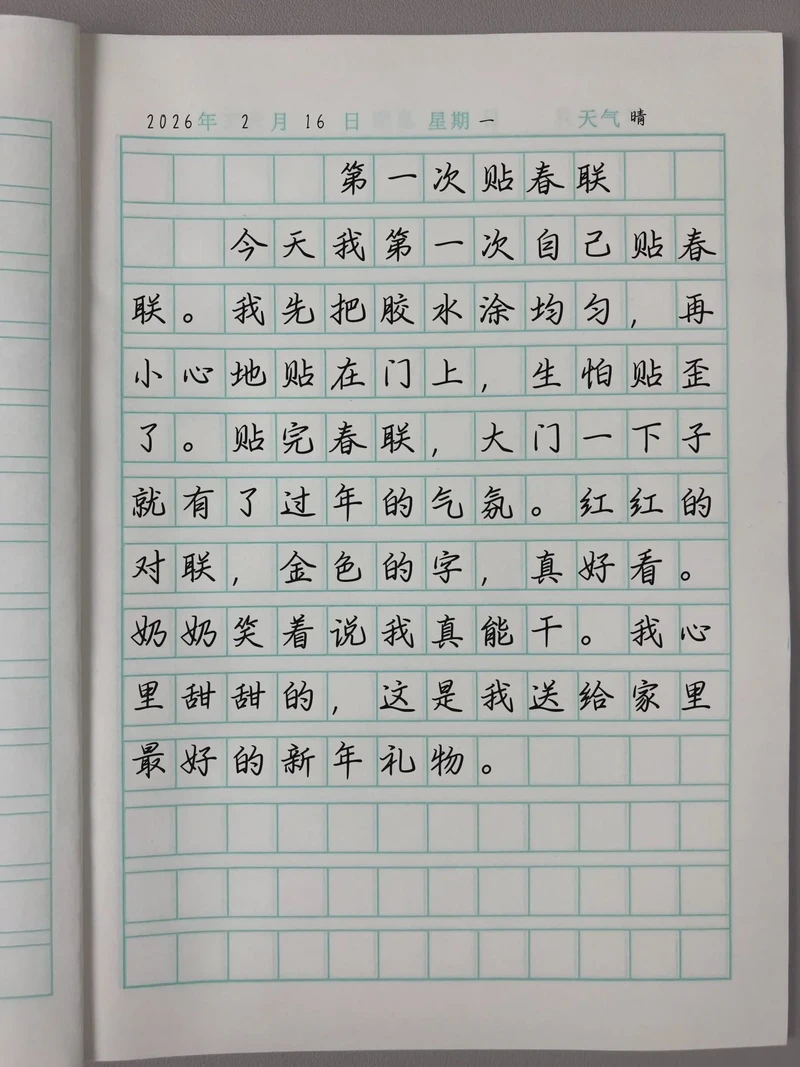 2026年 2 月 16 日 星期 一 天气 晴
第一次贴春联
今天我第一次自己贴春
联。我先把胶水涂均匀，再
小心地贴在门上，生怕贴歪
了。贴完春联，大门一下子
就有了过年的气氛。红红的
对联，金色的字，真好看。
奶奶笑着说我真能干。我心
里甜甜的，这是我送给家里
最好的新年礼物。